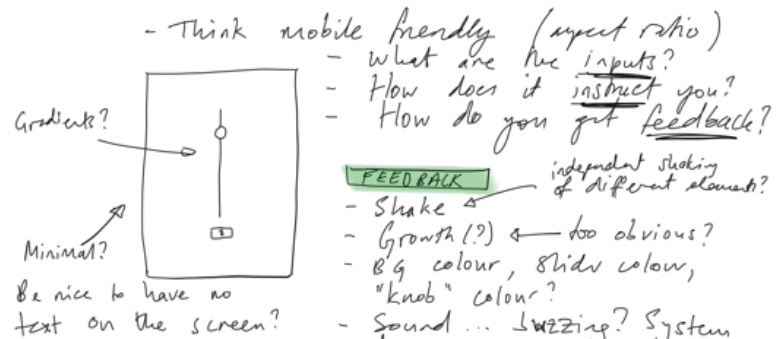 - Think mobile friendly (aspect ratio)
- What are the inputs?
- How does it instruct you?
- How do you get feedback?
Gradients?
Minimal?
Be nice to have no
text on the screen?
FEEDBACK
- Shake
independent shaking
of different elements?
- Growth (?)
too obvious?
- BG colour, slider colour,
"knob" colour?
- Sound ... buzzing? System